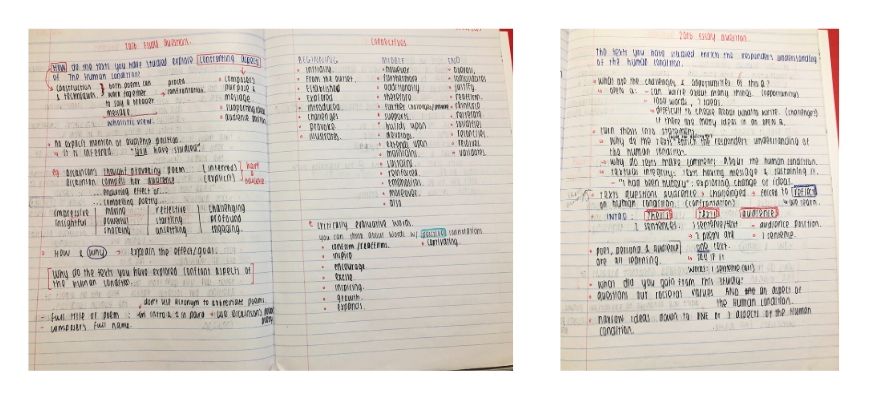 2016 Essay Question.
How do the texts you have studied explore confronting aspects
of The Human Condition?
construction
& techniques.
both poems can
work together
to say a broader
message
wholistic view.
composer's
purpose &
message
supporting ideas
audience position
no explicit mention of auditing
it is inferred. "you have studied".
eg. Dickinson's thought provoking poem (inferred)
Dickinson compels her audience (explicit)
have a
audience
... enquiring effect of...
... compelling poetry...
impressive | moving | reflective | challenging
insightful | powerful | startling | profound
inspiring | unsettling | engaging.
HOW & why → explain the effect/goal.
Why do the texts you have explored confront aspects of
the human condition.
don't use acronym to abbreviate poems.
- full title of poem : in intro & in para
- composer's full name.
Connectives
BEGINNING
initially
from the outset
established
explored
introduced
challenges
provoke
illustrates
MIDDLE
however
furthermore
additionally
therefore
further challenges/provokes
supports
builds upon
develops
extends upon
maintains
sustains
reinforces
emphasises
moreover
also
END
overall
consolidates
justify
reaffirm
reinforce
resolves
validates
Critically evaluative words
you can think about words w/ positive connotations
confirm/reaffirm.
captivating.
inspire
encourage
excite
inspiring
growth
expands.
2015 Essay Question.
The texts you have studied enrich the responders understanding
of the human condition.
What are the challenges & opportunities of this Q?
open Q: can write about many things. (opportunity)
1000 words, 2 ideas.
difficult to choose about what to write. (challenges)
if there are many ideas in an open Q.
turn them into statement
Why do the texts enrich the responders understanding of
the human condition.
Why do texts make comment about the human condition.
textual integrity: texts having message & sustaining it.
- "I had been hungry": exploring change of ideas.
texts questions audience → challenged → forced to reflect
on human condition. (confrontation)
we learn.
INTRO: Thesis Texts audience
3 sentences. 1 sentence/text - audience position.
1 sentence.
poet, persona & audience
are all learning.
one text.
what did you gain from this study?
questions our societal values AND an aspect of
the Human condition.
narrow ideas down to ONE or 2 aspects of the Human
condition.